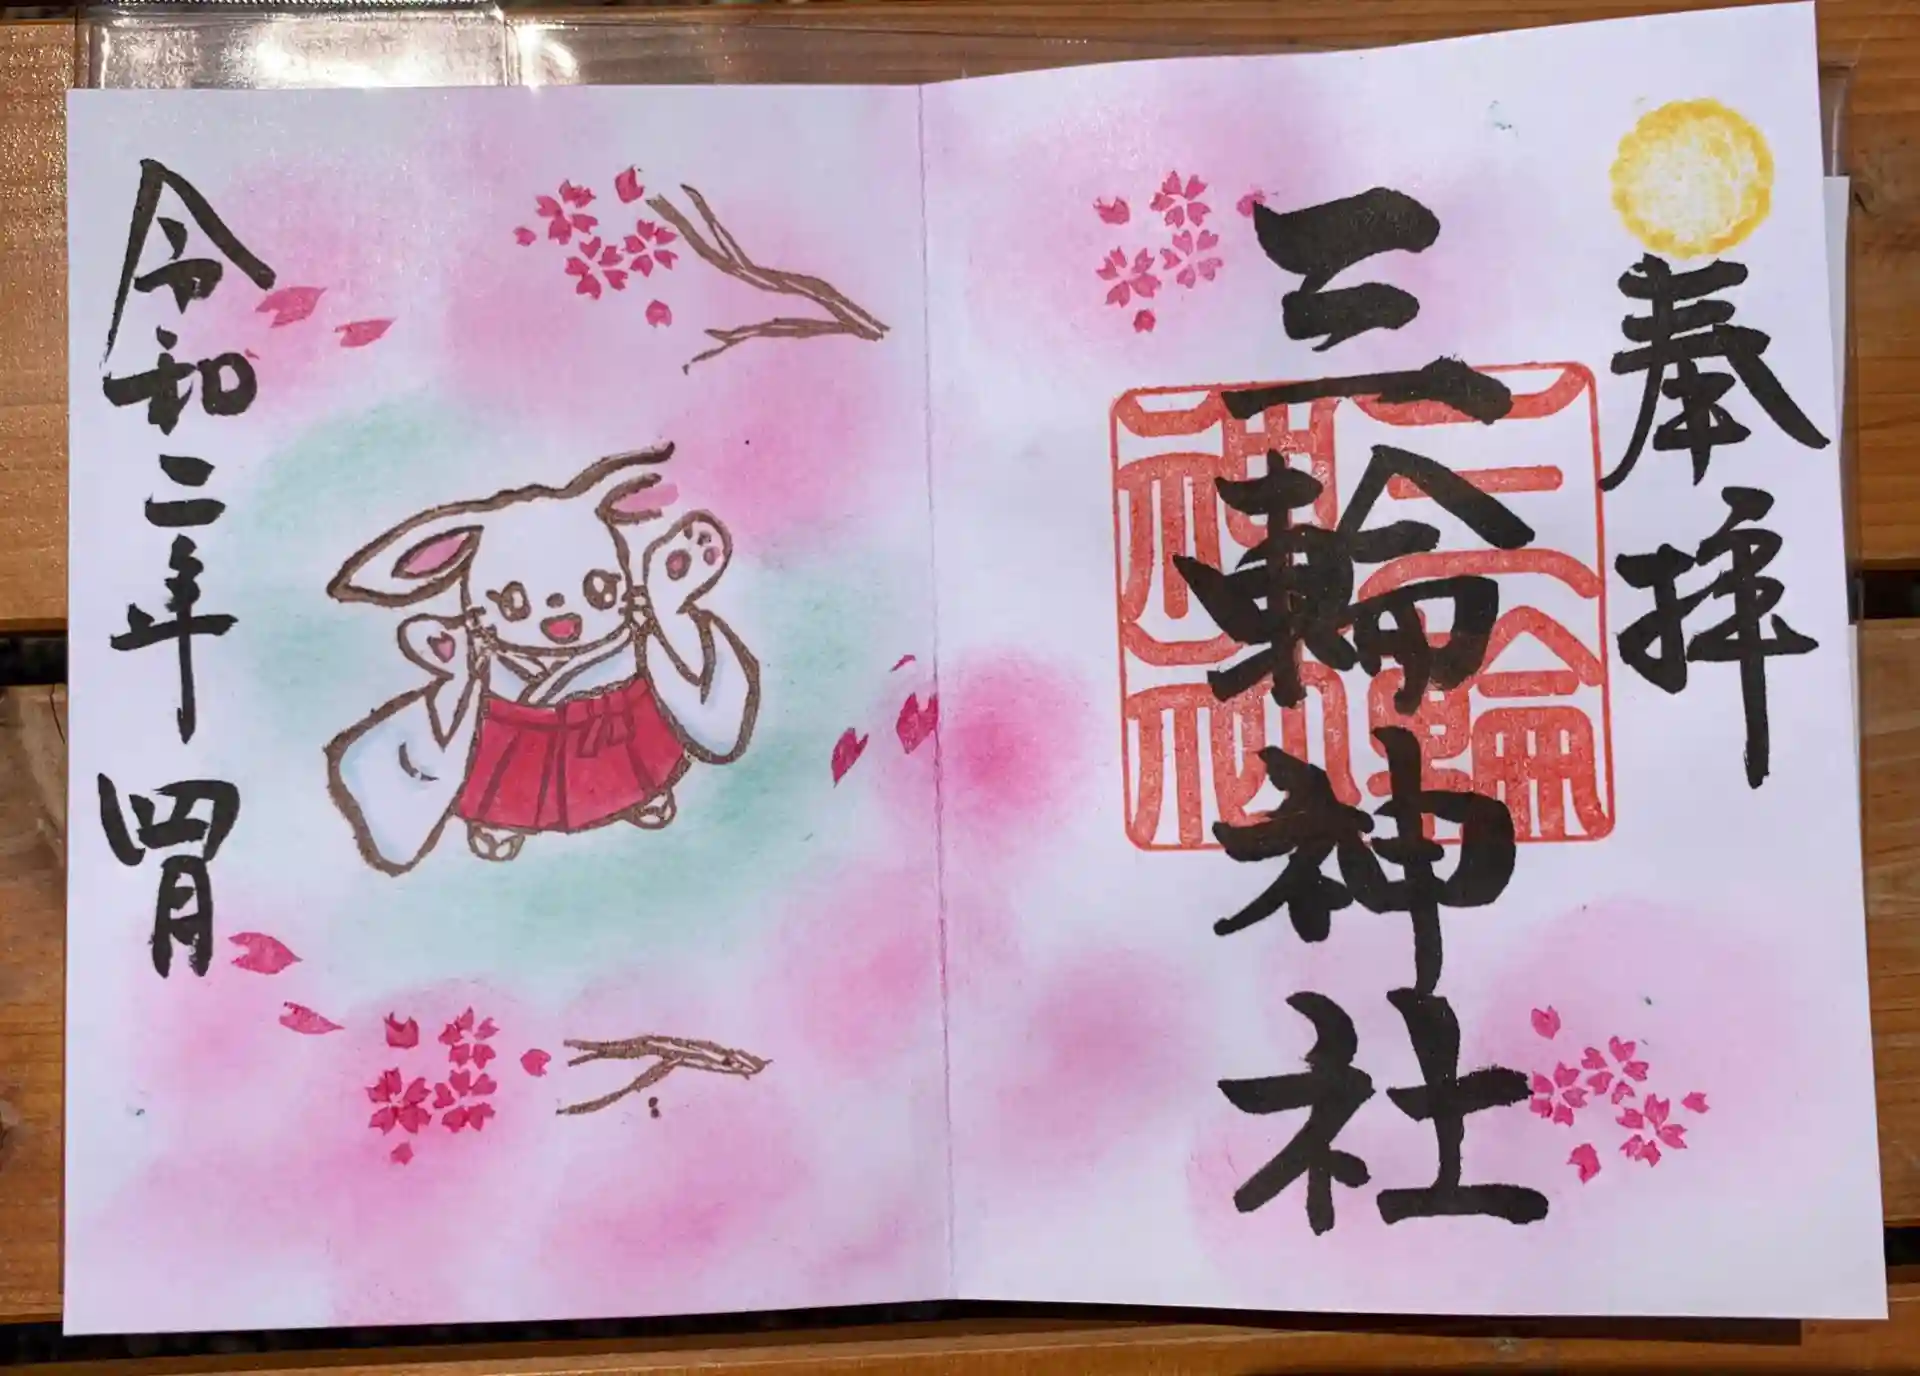 奉拝
三輪神社
三輪神社
令和二年 四月